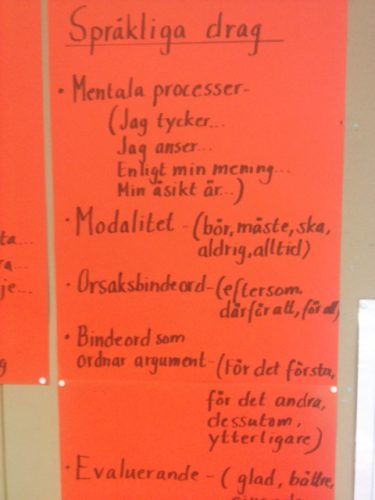 Språkliga drag
• Mentala processer-
(Jag tycker...
Jag anser...
Enligt min mening...
Min åsikt är...)
• Modalitet - (bör, måste, ska,
aldrig, alltid)
• Orsaksbindeord - (eftersom,
därför att, för att)
• Bindeord som
ordnar argument - (För det första,
för det andra,
dessutom,
ytterligare)
• Evaluerande - (glad, bättre,
ta...
ra...
je...